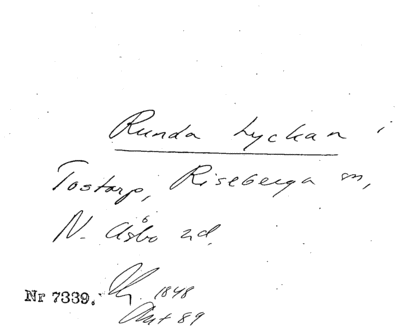 Runda Lyckan i
Tostarp, Riseberga sn,
N. Åsbo hd.
Nr 7339. 1848
89